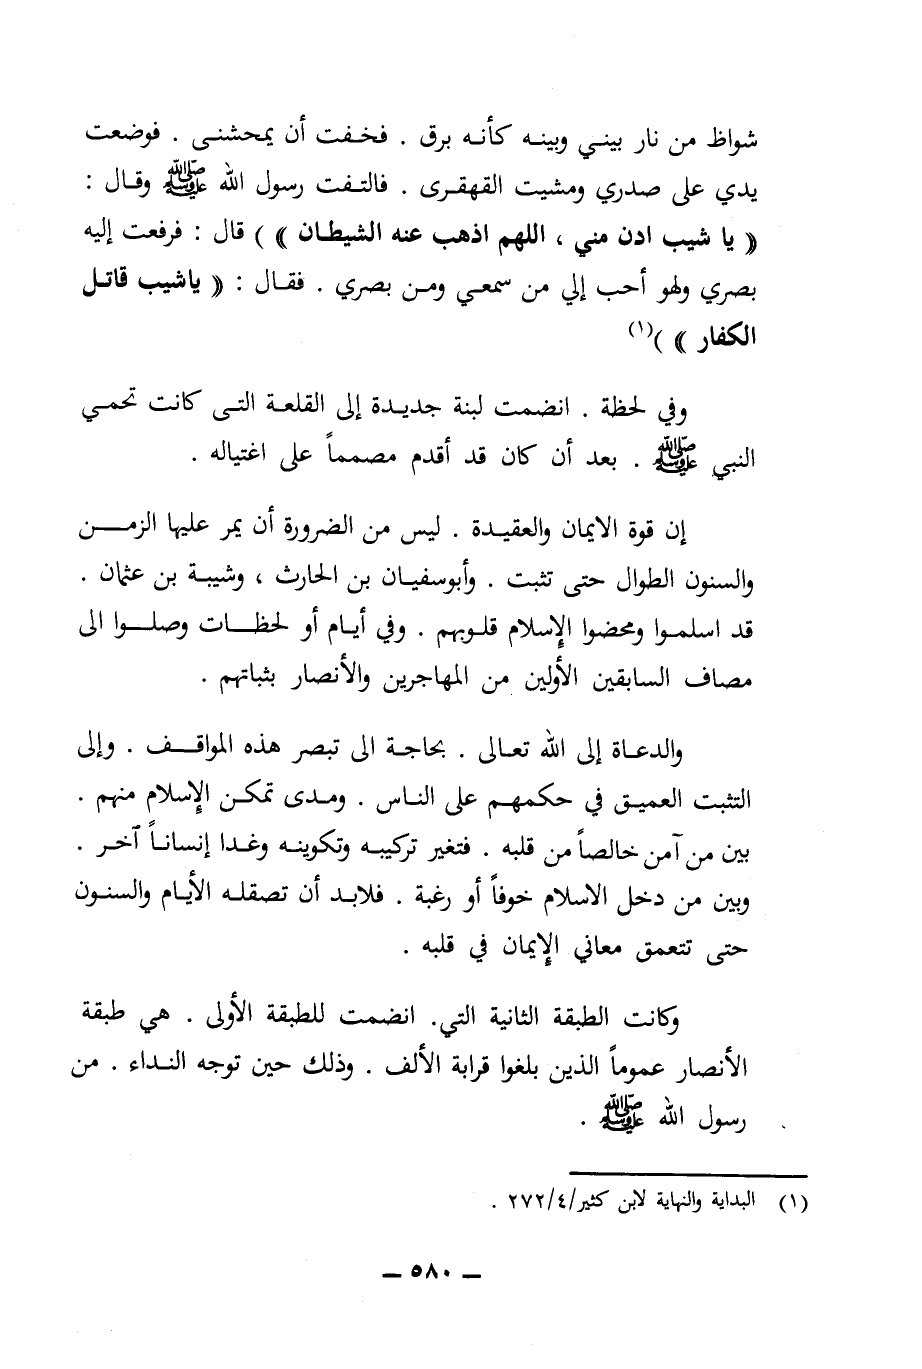 شواظ من نار بيني وبينه كأنه برق . فخفت أن يمحشنى . فوضعت
يدي على صدري ومشيت القهقرى . فالتفت رسول الله ﷺ وقال :
﴿ يا شيب ادن مني ، اللهم اذهب عنه الشيطان ﴾ ) قال : فرفعت إليه
بصري ولهو أحب إلي من سمعي ومن بصري . فقال : ﴿ ياشيب قاتل
الكفار ﴾ )(١)
وفي لحظة . انضمت لبنة جديدة إلى القلعة التى كانت تحمي
النبي ﷺ . بعد أن كان قد أقدم مصمماً على اغتياله .
إن قوة الايمان والعقيدة . ليس من الضرورة أن يمر عليها الزمن
والسنون الطوال حتى تثبت . وأبوسفيان بن الحارث ، وشيبة بن عثمان .
قد اسلموا ومحضوا الإسلام قلوبهم . وفي أيام أو لحظات وصلوا الى
مصاف السابقين الأولين من المهاجرين والأنصار بثباتهم .
والدعاة إلى الله تعالى . بحاجة الى تبصر هذه المواقف . وإلى
التثبت العميق في حكمهم على الناس . ومدى تمكن الإسلام منهم .
بين من آمن خالصاً من قلبه . فتغير تركيبه وتكوينه وغدا إنساناً آخر .
وبين من دخل الاسلام خوفاً أو رغبة . فلابد أن تصقله الأيام والسنون
حتى تتعمق معاني الإيمان في قلبه .
وكانت الطبقة الثانية التي. انضمت للطبقة الأولى . هي طبقة
الأنصار عموماً الذين بلغوا قرابة الألف . وذلك حين توجه النداء . من
رسول الله ﷺ .
(١) البداية والنهاية لابن كثير/٢٧٢/٤ .
ـ ٥٨٠ ـ